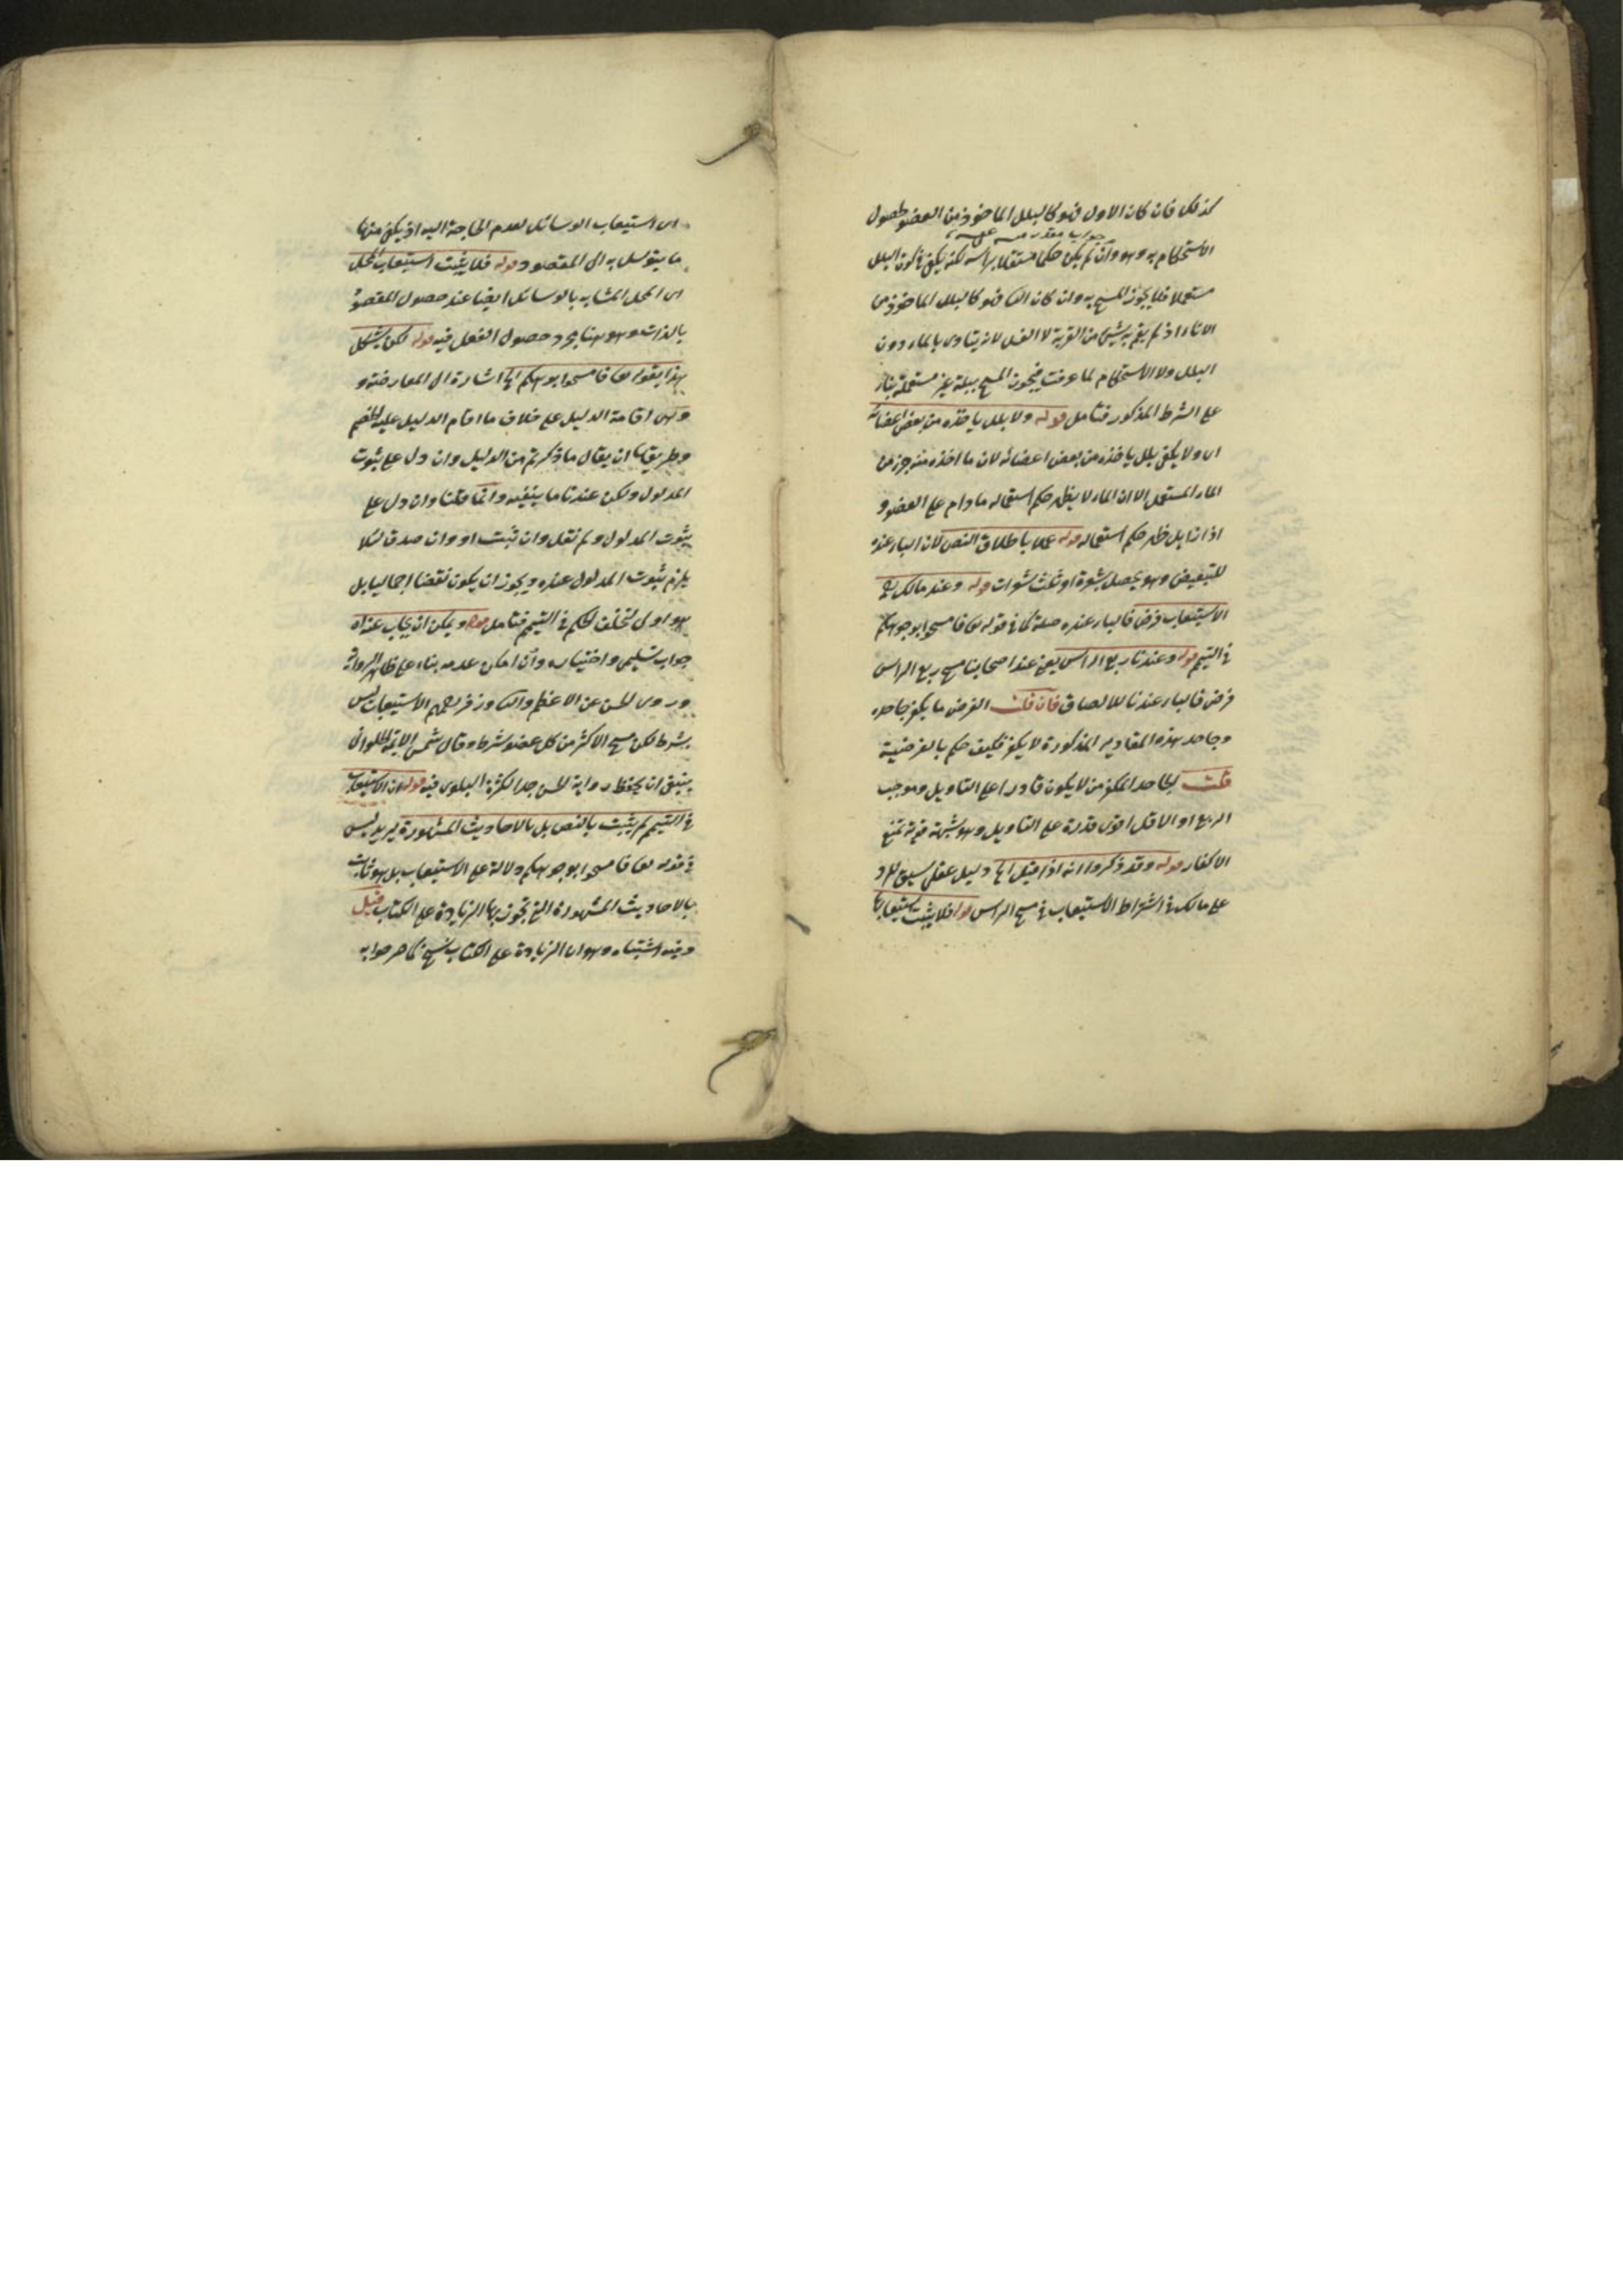 كذلك فان كان الاول فهو كالبلل الماخوذ من العضو لحصول
جواب مقدر
الاستحكام به وهو وان لم يكن حكما مستقلا براسه لكنه يكفي في كون البلل
مستعملا فلا يجوز المسح به وان كان الثاني فهو كالبلل الماخوذ من
الاناء اذ لم يقم به شيء من القربة لا الغسل لانه يتادى بالماء دون
البلل ولا الاستحكام لما عرفت فيجوز المسح ببلة غير مستعملة بناء
على الشرط المذكور فتامل قوله ولا بلل ياخذه من بعض اعضائه
اى ولا يكفى بلل ياخذه من بعض اعضائه لان ما اخذه منه جزء من
الماء المستعمل الا ان الماء لا يظهر حكم استعماله ما دام على العضو و
اذا زايل ظهر حكم استعماله قوله عملا باطلاق النص لان الباء عنده
للتبعيض وهو يحصل بشعرة او ثلث شعرات قوله وعند مالك رح
الاستيعاب فرض فالباء عنده صلة كما فى قوله تعالى فامسحوا بوجوهكم
فى التيمم قوله وعندنا ربع الراس يعنى عند اصحابنا مسح ربع الراس
فرض فالباء عندنا للالصاق فان قلت الفرض ما يكفر جاحده
وجاحد هذه المقادير المذكورة لا يكفر فكيف حكم بالفرضية
قلت الجاحد المكفر من لا يكون قادرا على التاويل وموجب
الربع او الاقل اقوى قدرة على التاويل وهو شبهة قوية تمنع
الاكفار قوله وقد ذكروا انه اذا قيل الخ دليل عقلى سيق للرد
على مالك فى اشتراط الاستيعاب فى مسح الراس قوله فلا يثبت استيعابها
اى استيعاب الوسائل لعدم الحاجة اليه اذ يكفى منها
ما يتوسل به الى المقصود قوله فلا يثبت استيعاب المحل
اى المحل المشابه بالوسائل ايضا عند حصول المقصود
بالذات وهو هنا مجرد حصول الفعل فيه قوله لكن يشكل
هذا بقوله تعالى فامسحوا بوجوهكم الخ اشارة الى المعارضة و
وهى اقامة الدليل على خلاف ما اقام الدليل عليه الخصم
وطريقها ان يقال ما ذكرتم من الدليل وان دل على ثبوت
المدلول ولكن عندنا ما ينفيه وانما قلنا وان دل على
ثبوت المدلول ولم نقل وان ثبت او وان صدق لئلا
يلزم ثبوت المدلول عنده ويجوز ان يكون نقضا اجماليا بل
هو اولى لتخلف الحكم فى التيمم فتامل قوله ويمكن ان يجاب عنه اه
جواب تسليمى واختياره وان امكن عدمه بناء على ظاهر الرواية
وروى الحسن عن الاعظم والثانى وزفر رحمهم الاستيعاب ليس
بشرط لكن مسح الاكثر من كل عضو شرط وقال شمس الائمة الحلوانى
ينبغى ان يحفظ رواية الحسن جدا لكثرة البلوى فيه قوله ان الاستيعاب
فى التيمم لم يثبت بالنص بل بالاحاديث المشهورة يريد ليس
فى قوله تعالى فامسحوا بوجوهكم دلالة على الاستيعاب بل هو ثابت
بالاحاديث المشهورة التى تجوز بها الزيادة على الكتاب قيل
وفيه اشتباه وهو ان الزيادة على الكتاب نسخ كما صرحوا به